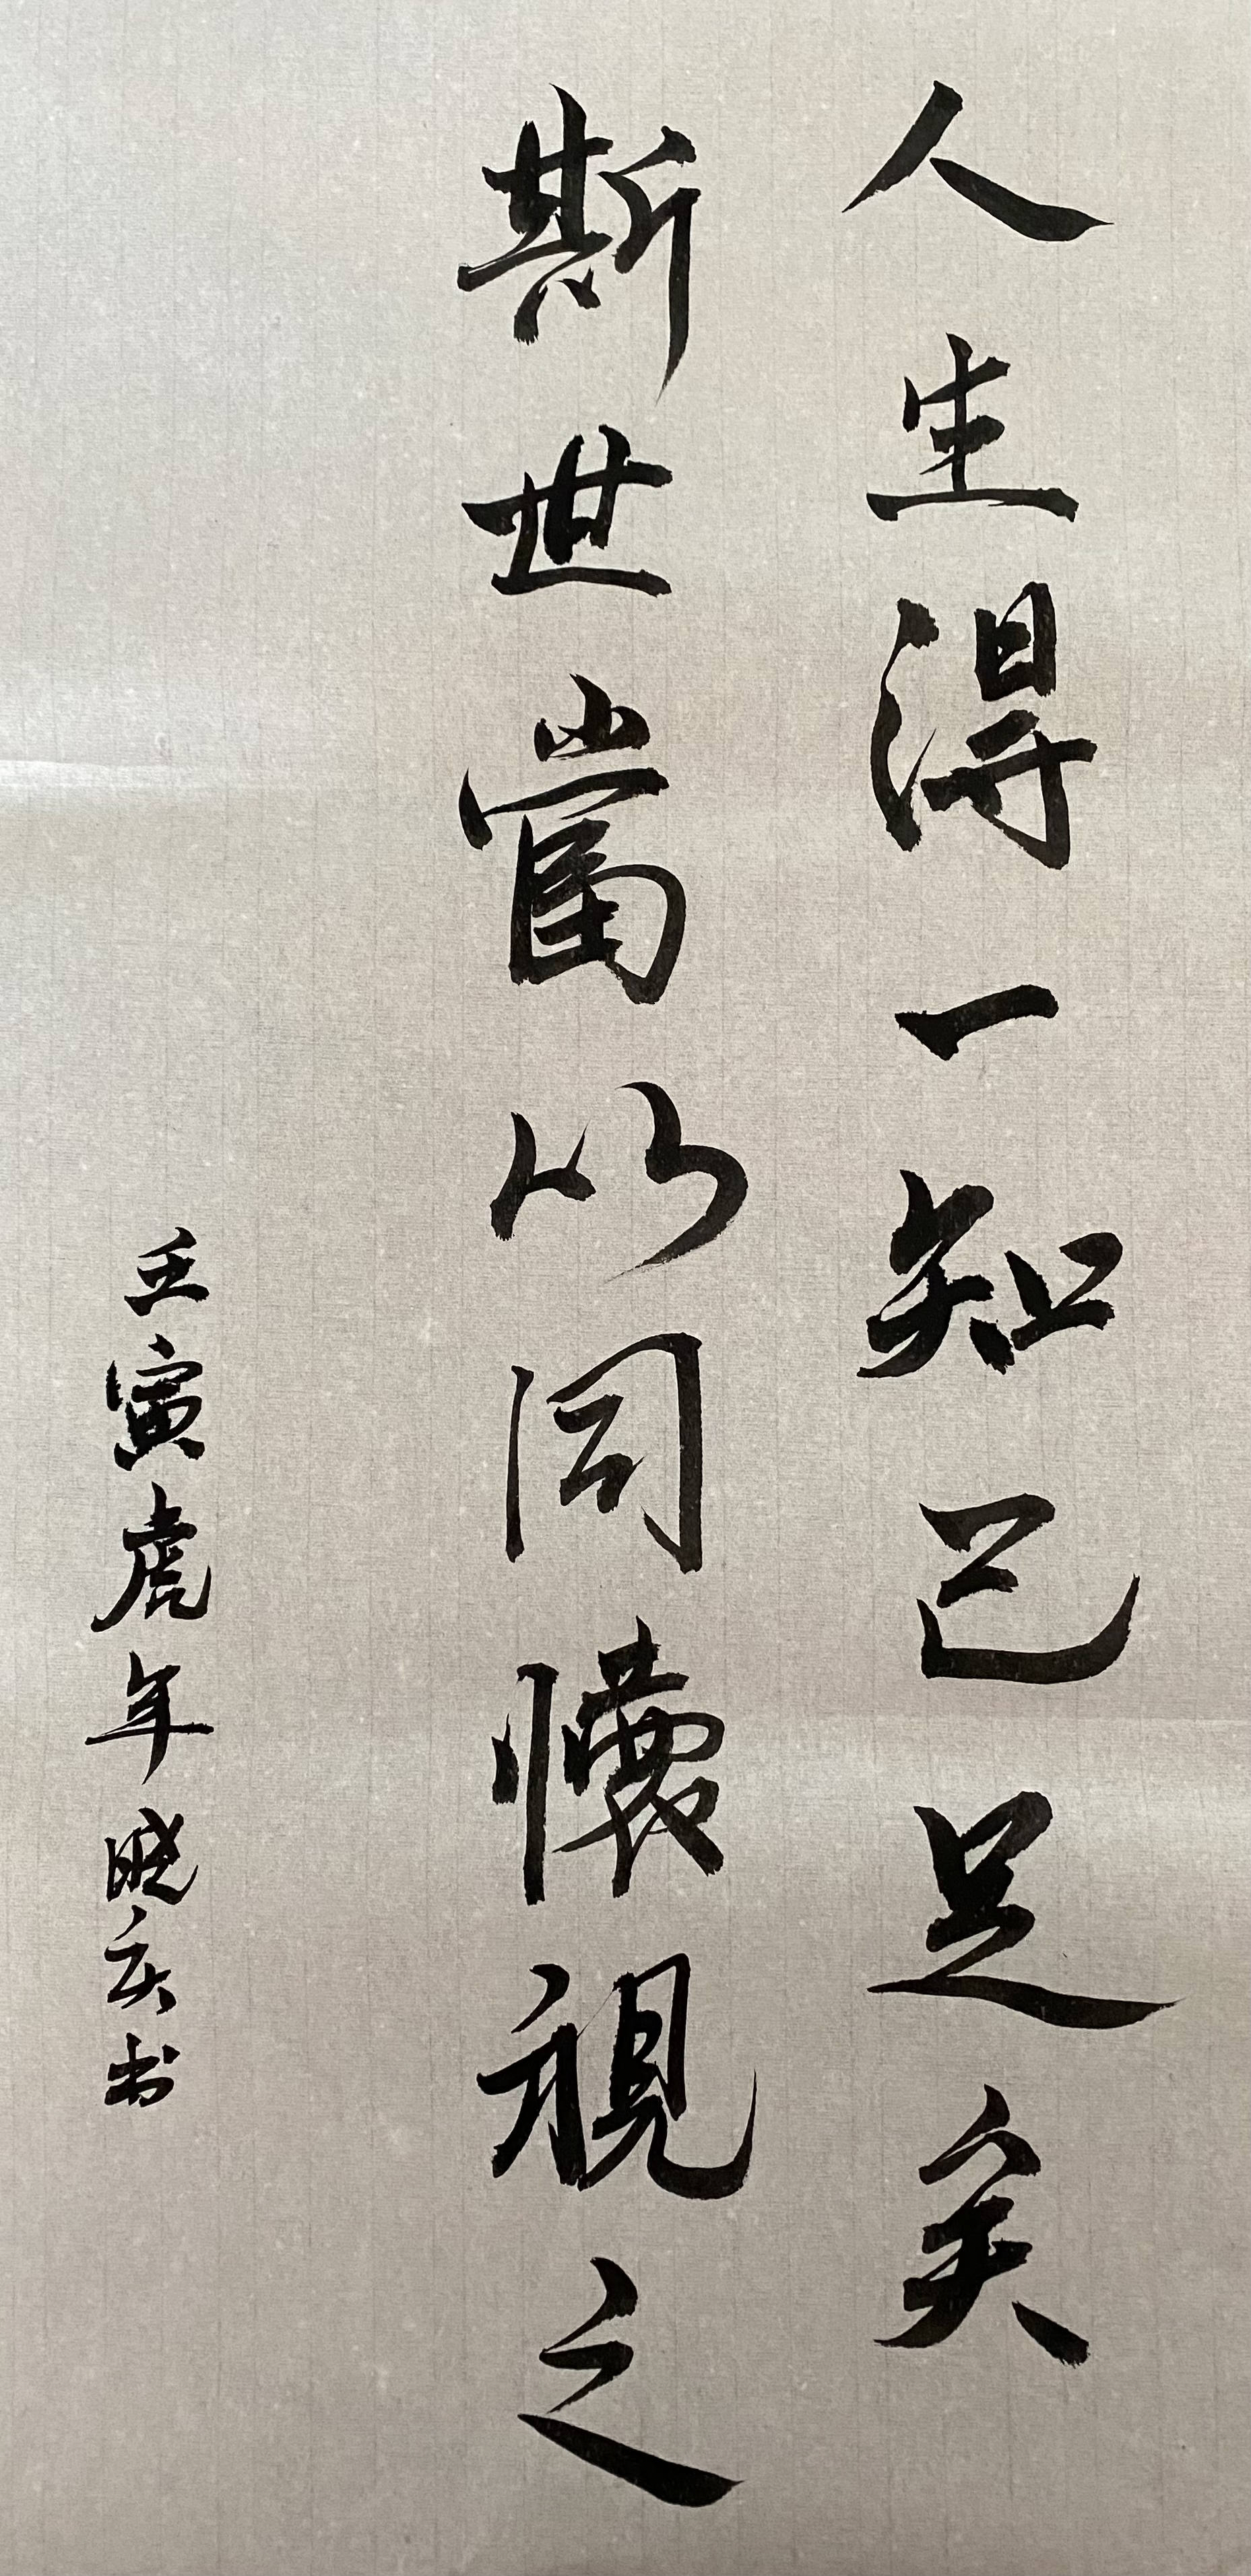 人生得一知己足矣
斯世當以同懷視之
壬寅虎年晓庆书